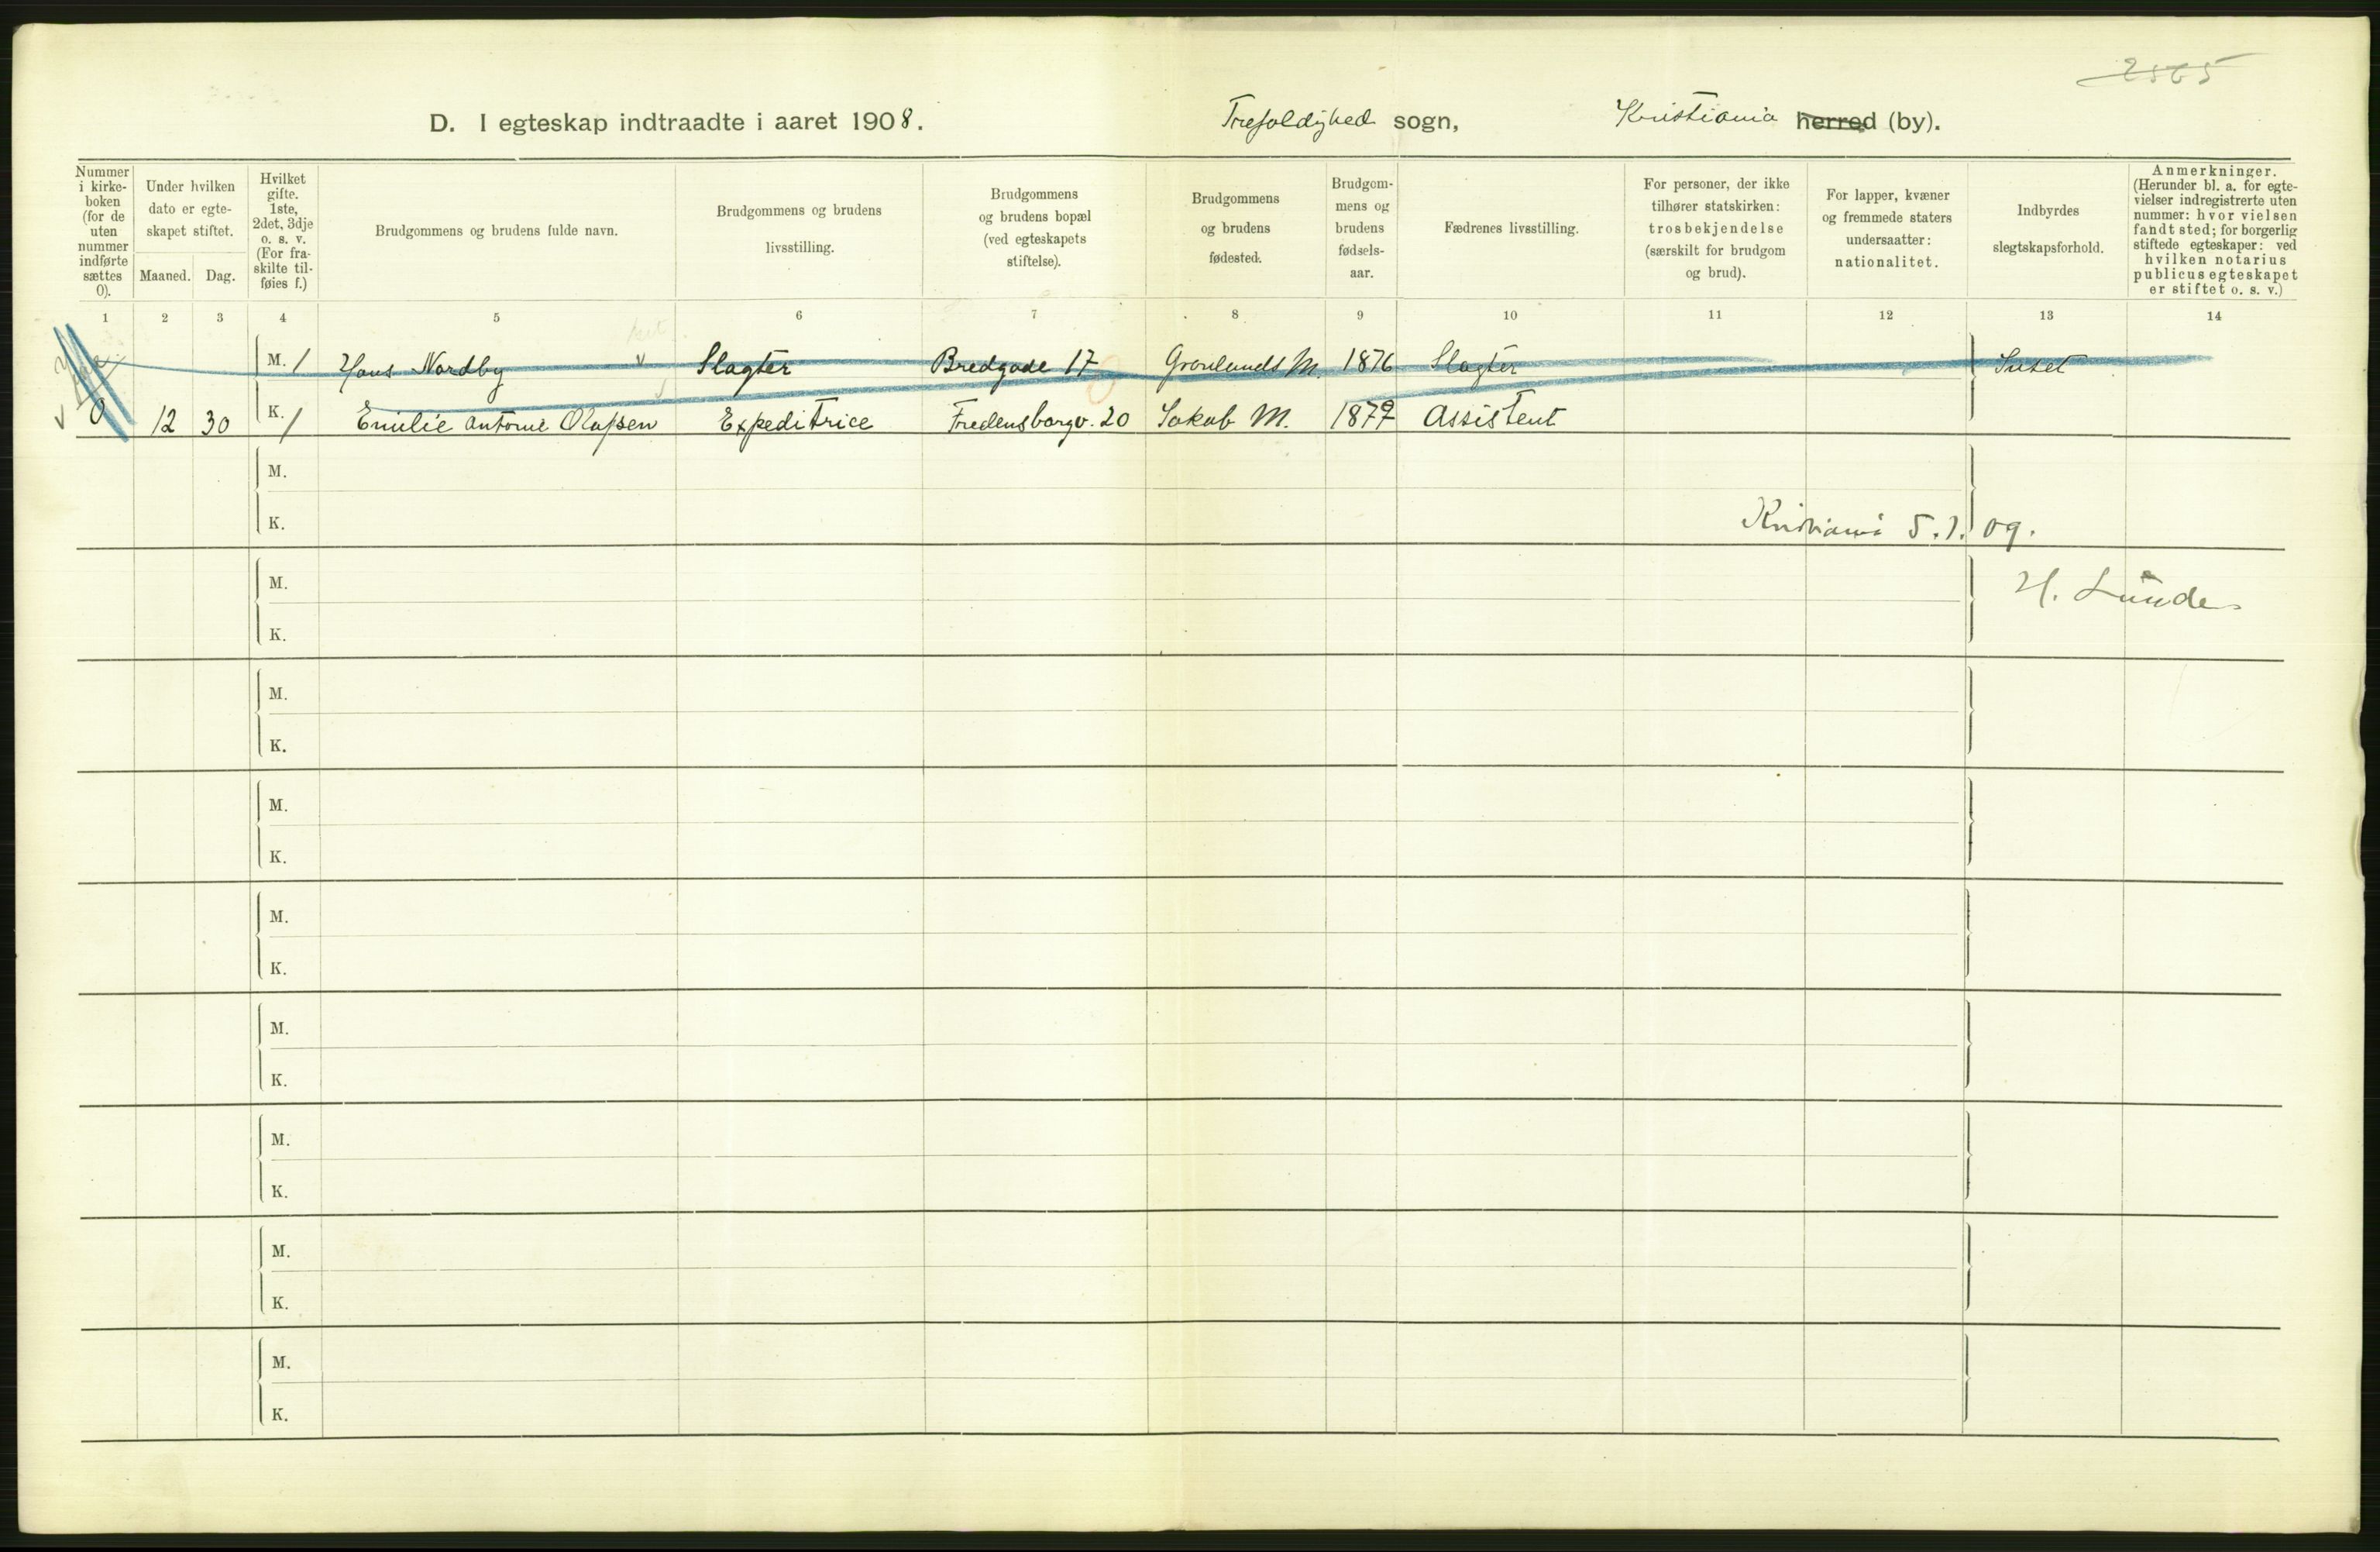 D. I egteskap indtraadte i aaret 1908. Trefoldighed sogn, Kristiania herred (by).
Nummer
i kirke-
boken
(for de
uten
nummer
indførte
sættes
0).
Under hvilken
dato er egte-
skapet stiftet.
Maaned. Dag.
Hvilket
gifte.
1ste,
2det, 3dje
o. s. v.
(For fra-
skilte til-
føies f.)
Brudgommens og brudens fulde navn.
Brudgommens og brudens
livsstilling.
Brudgommens
og brudens bopæl
(ved egteskapets
stiftelse).
Brudgommens
og brudens
fødested.
Brudgom-
mens og
brudens
fødsels-
aar.
Fædrenes livsstilling.
For personer, der ikke
tilhører statskirken:
trosbekjendelse
(særskilt for brudgom
og brud).
For lapper, kvæner
og fremmede staters
undersaatter:
nationalitet.
Indbyrdes
slegtskapsforhold.
Anmerkninger.
(Herunder bl. a. for egte-
vielser indregistrerte uten
nummer: hvor vielsen
fandt sted; for borgerlig
stiftede egteskaper: ved
hvilken notarius
publicus egteskapet
er stiftet o. s. v.)
1 2 3 4 5 6 7 8 9 10 11 12 13 14
M. 1 Hans Nordby Slagter Bredgade 17 Grønlands M. 1876 Slagter Intet
0 12 30 K. 1 Emilie Antonie Olafsen Expeditrice Fredensborgv. 20 Jakob M. Assistent
M.
K. Kristiania 5.1.09.
M. H. Lunde
K.
M.
K.
M.
K.
M.
K.
M.
K.
M.
K.
M.
K.
M.
K.